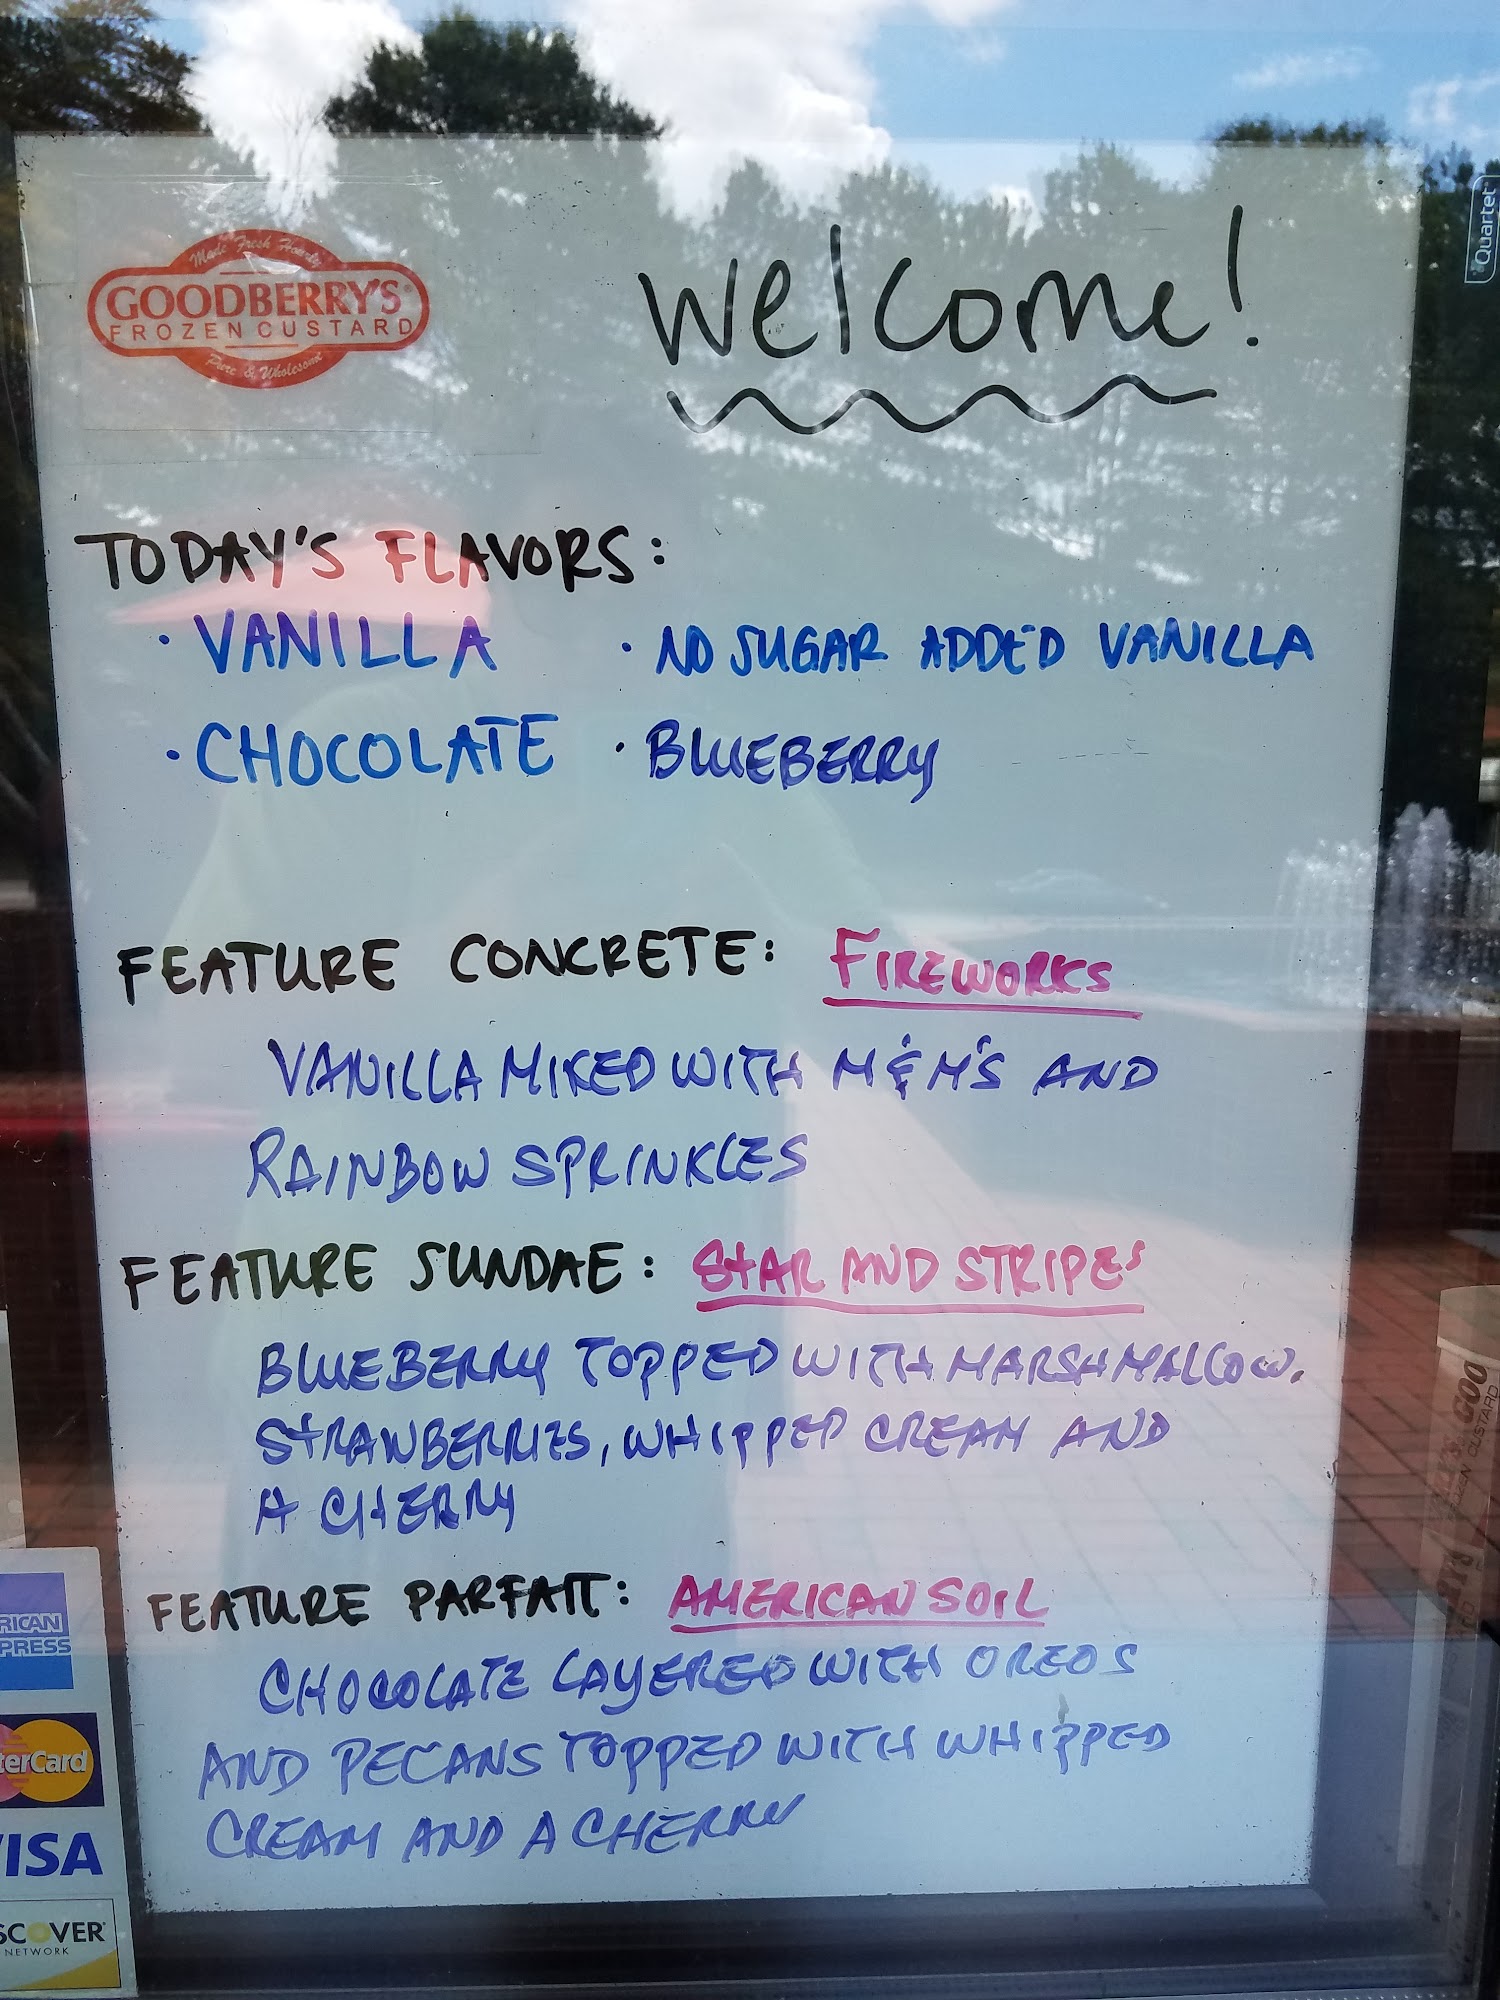 Quartet
Made Fresh Hourly
GOODBERRY'S
FROZEN CUSTARD
Pure & Wholesome
Welcome!
TODAY'S FLAVORS:
· VANILLA · NO SUGAR ADDED VANILLA
· CHOCOLATE · BLUEBERRY
FEATURE CONCRETE: FIREWORKS
VANILLA MIXED WITH M&M'S AND
RAINBOW SPRINKLES
FEATURE SUNDAE: STAR AND STRIPES
BLUEBERRY TOPPED WITH MARSHMALLOW.
STRAWBERRIES, WHIPPED CREAM AND
A CHERRY
FEATURE PARFAIT: AMERICAN SOIL
CHOCOLATE LAYERED WITH OREOS
AND PECANS TOPPED WITH WHIPPED
CREAM AND A CHERRY
RICAN
PRESS
terCard
VISA
SCOVER
NETWORK
GOO
CUSTARD